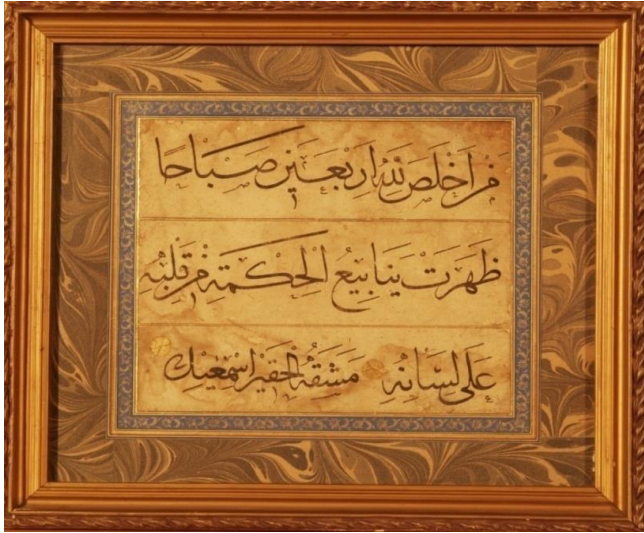 مَنْ اَخْلَصَ لِلّٰهِ اَرْبَعَينَ صَبَاحًا
ظَهَرَتْ يَنَابِيعُ الْحِكْمَةِ مِنْ قَلْبِهِ
عَلَى لِسَانِهِ مَشَقَهُ الْحَقِير اِسْمٰعِيل